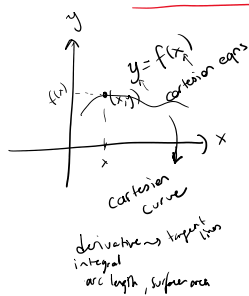 y
y = f(x)
cartesion eqns
f(x)
(x,y)
x
x
cartesion
curve
derivative → tangent
lines
integral
arc length, surface area